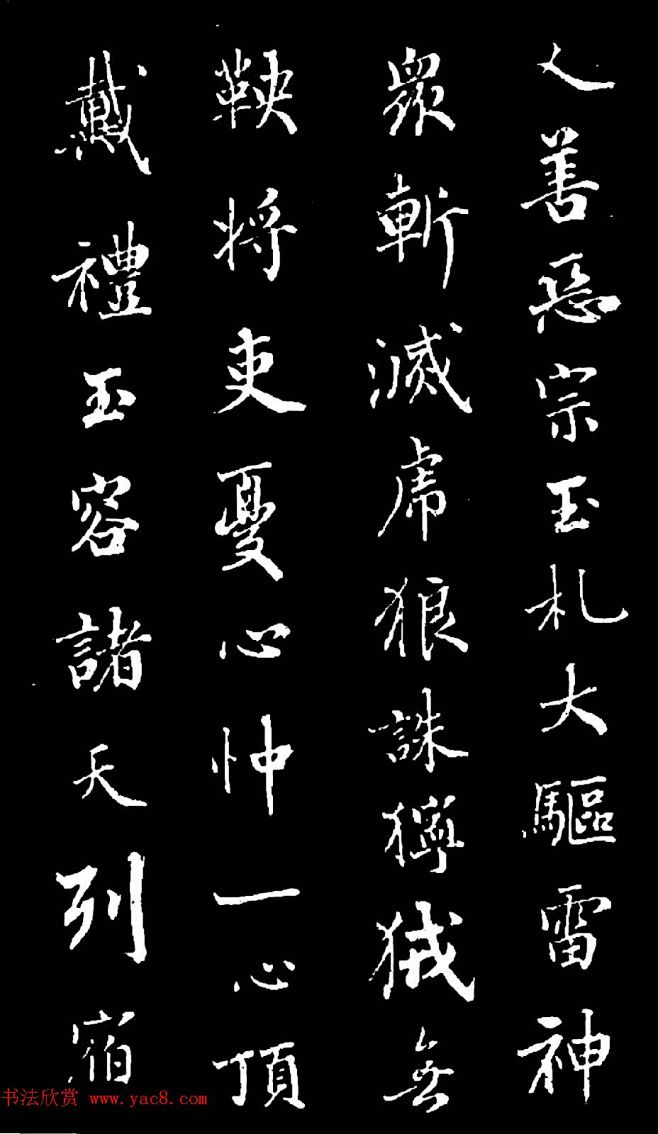 人善惡宗玉札大驅雷神
眾斬滅虎狼誅獰狨無
鞅將吏憂心忡一心頂
戴禮玉容諸天列宿
书法欣赏 www.yac8.com